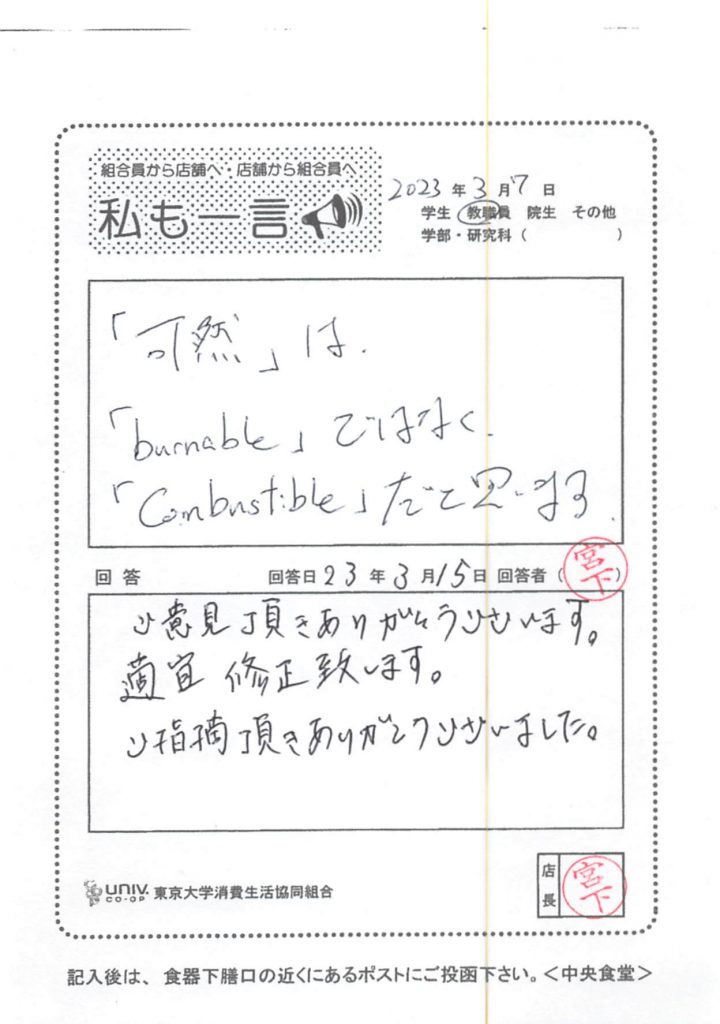 組合員から店舗へ・店舗から組合員へ
私も一言
2023年3月7日
学生 教職員 院生 その他
学部・研究科( )
「可然」は.
「burnable」ではなく.
「Combustible」だと思います.
回答 回答日23年3月15日 回答者(宮下)
ご意見頂きありがとうございます。
適宜 修正致します。
ご指摘頂きありがとうございました。
店長 宮下
UNIV. CO-OP 東京大学消費生活協同組合
記入後は、食器下膳口の近くにあるポストにご投函下さい。<中央食堂>